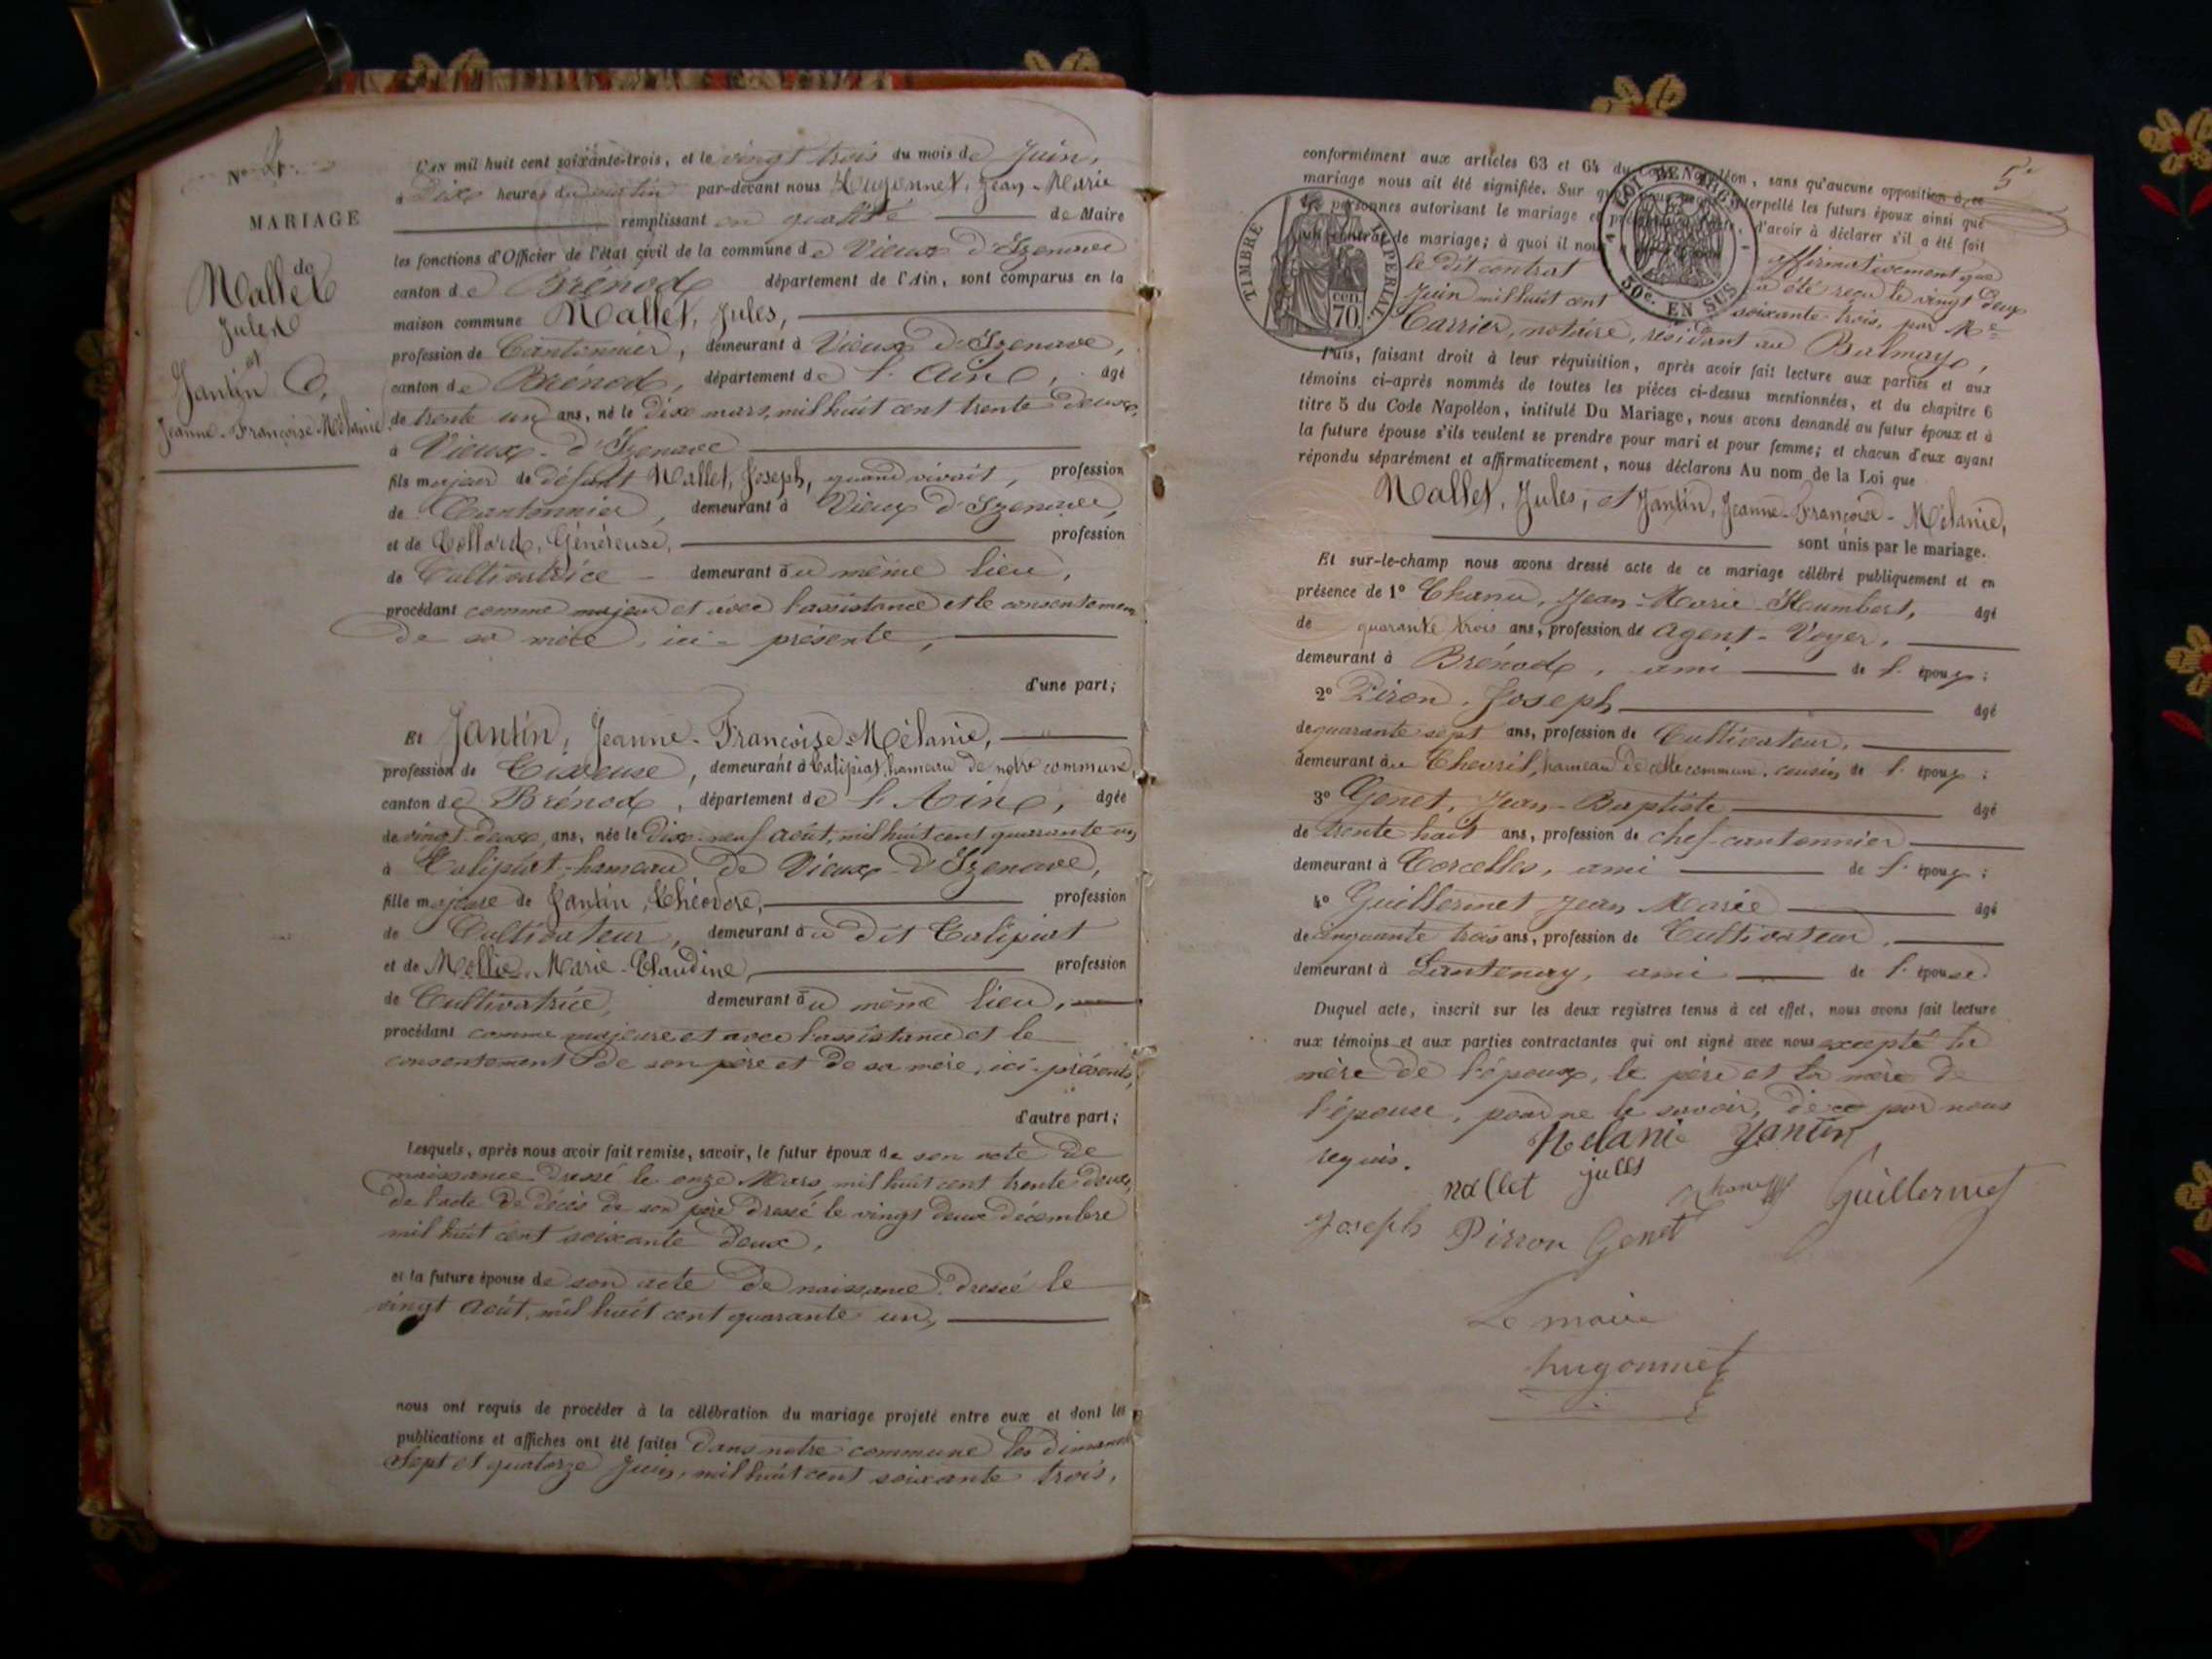 N° 4.
MARIAGE
de
Nallet
Jules
et
Jantin
Jeanne-Françoise-Mélanie
L'AN mil huit cent soixante-trois, et le vingt trois du mois de Juin,
à Dix heures du matin par-devant nous Hugonnet, Jean-Marie
remplissant en qualité de Maire
les fonctions d'Officier de l'état civil de la commune de Vieux d'Izenave
canton de Brénod département de l'Ain, sont comparus en la
maison commune Nallet, Jules,
profession de Cantonnier, demeurant à Vieux d'Izenave,
canton de Brénod, département de l'Ain, âgé
de trente un ans, né le Dix mars, mil huit cent trente Deux,
à Vieux-d'Izenave
fils majeur de défunt Nallet, Joseph, quand vivait, profession
de Cantonnier, demeurant à Vieux d'Izenave,
et de Collard, Généreuse, profession
de Cultivatrice - demeurant au même lieu,
procédant comme majeur et avec l'assistance et le consentement
de sa mère, ici-présente,
d'une part;
Et Jantin, Jeanne-Françoise-Mélanie,
profession de Tisseuse, demeurant à Talipiat, hameau de notre commune,
canton de Brénod, département de l'Ain, âgée
de vingt-deux, ans, née le Dix-neuf Août, mil huit cent quarante un
à Talipiat, hameau de Vieux-d'Izenave,
fille majeure de Jantin, Théodore, profession
de Cultivateur, demeurant au dit Talipiat
et de Mollie, Marie-Claudine, profession
de Cultivatrice, demeurant au même lieu,
procédant comme majeure et avec l'assistance et le
consentement de son père et de sa mère, ici-présents,
d'autre part;
Lesquels, après nous avoir fait remise, savoir, le futur époux de son acte de
naissance dressé le onze Mars, mil huit cent trente Deux,
de l'acte de décès de son père dressé le vingt deux décembre
mil huit cent soixante deux,
et la future épouse de son acte de naissance dressé le
vingt Août, mil huit cent quarante un,
nous ont requis de procéder à la célébration du mariage projeté entre eux et dont les
publications et affiches ont été faites Dans notre commune les dimanches
Sept et quatorze Juin, mil huit cent soixante trois,
5
conformément aux articles 63 et 64 du Code Napoléon, sans qu'aucune opposition à ce
mariage nous ait été signifiée. Sur quoi nous avons interpellé les futurs époux ainsi que
les personnes autorisant le mariage et d'avoir à déclarer s'il a été fait
un contrat de mariage; à quoi il nou affirmativement que
le dit contrat a été reçu le vingt Deux
Juin mil huit cent soixante-trois, par Me
Carrier, notaire, résidant au Balmay,
TIMBRE IMPERIAL
cen. 70
LOI DE
50c. EN SUS
Puis, faisant droit à leur réquisition, après avoir fait lecture aux parties et aux
témoins ci-après nommés de toutes les pièces ci-dessus mentionnées, et du chapitre 6
titre 5 du Code Napoléon, intitulé Du Mariage, nous avons demandé au futur époux et à
la future épouse s'ils veulent se prendre pour mari et pour femme; et chacun d'eux ayant
répondu séparément et affirmativement, nous déclarons Au nom de la Loi que
Nallet, Jules, et Jantin, Jeanne-Françoise-Mélanie,
sont unis par le mariage.
Et sur-le-champ nous avons dressé acte de ce mariage célébré publiquement et en
présence de 1° Chanu, Jean-Marie-Humbert, âgé
de quarante trois ans, profession de Agent-Voyer,
demeurant à Brénod, ami de l'époux;
2° Piron, Joseph âgé
de quarante sept ans, profession de Cultivateur,
demeurant au Chevril, hameau de cette commune, cousin de l'époux;
3° Genet, Jean-Baptiste âgé
de trente huit ans, profession de chef-cantonnier
demeurant à Corcelles, ami de l'époux;
4° Guillermet Jean Marie âgé
de cinquante trois ans, profession de Cultivateur,
demeurant à Lantenay, ami de l'épouse
Duquel acte, inscrit sur les deux registres tenus à cet effet, nous avons fait lecture
aux témoins et aux parties contractantes qui ont signé avec nous excepté la
mère de l'époux, le père et la mère de
l'épouse, pour ne le savoir, de ce par nous
requis.
Melani Jantin
nallet jules
Guillermet
Joseph Pirron Genet
Le maire
hugonnet